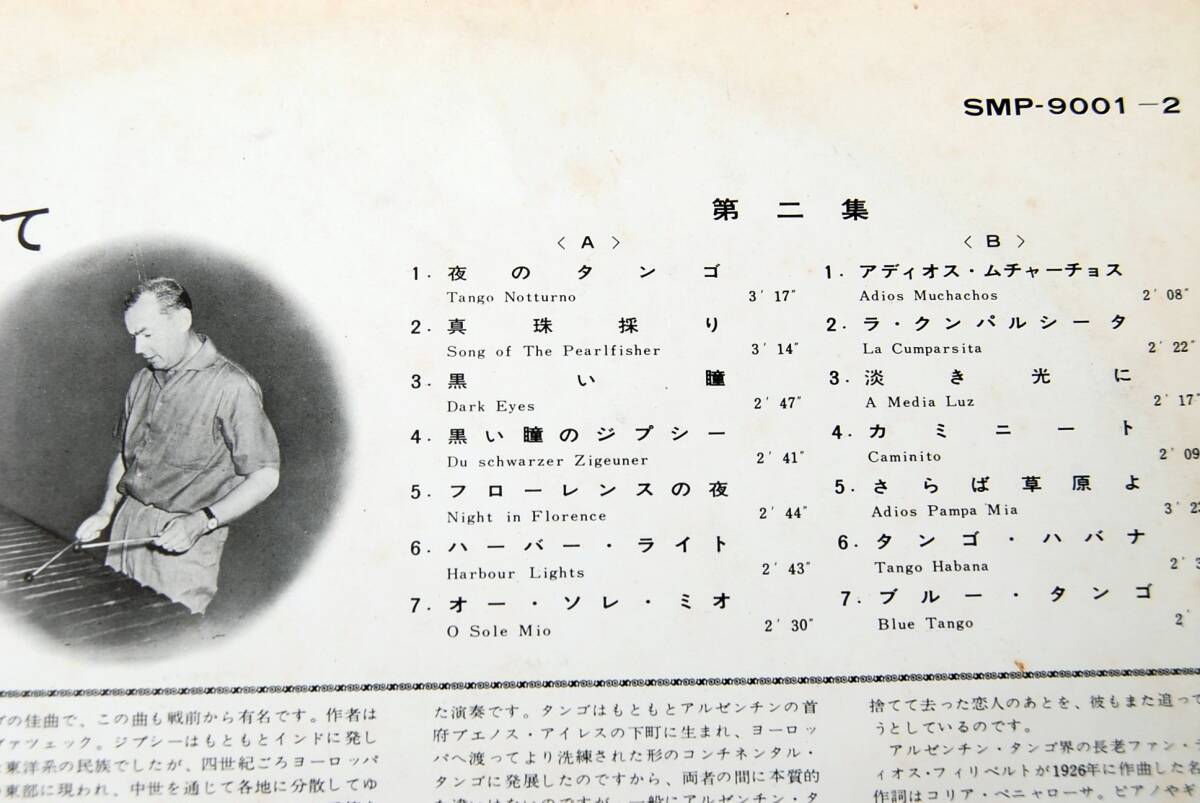 SMP-9001-2
て
第二集
〈 A 〉
1. 夜のタンゴ
Tango Notturno 3′ 17″
2. 真珠採り
Song of The Pearlfisher 3′ 14″
3. 黒い瞳
Dark Eyes 2′ 47″
4. 黒い瞳のジプシー
Du schwarzer Zigeuner 2′ 41″
5. フローレンスの夜
Night in Florence 2′ 44″
6. ハーバー・ライト
Harbour Lights 2′ 43″
7. オー・ソレ・ミオ
O Sole Mio 2′ 30″
〈 B 〉
1. アディオス・ムチャーチョス
Adios Muchachos 2′ 08″
2. ラ・クンパルシータ
La Cumparsita 2′ 22″
3. 淡き光に
A Media Luz 2′ 17″
4. カミニート
Caminito 2′ 09
5. さらば草原よ
Adios Pampa Mia 3′
6. タンゴ・ハバナ
Tango Habana 2′
7. ブルー・タンゴ
Blue Tango 2′
の佳曲で、この曲も戦前から有名です。作者は
ヴァツェック。ジプシーはもともとインドに発し
東洋系の民族でしたが、四世紀ごろヨーロッパ
東部に現われ、中世を通じて各地に分散してゆ
た演奏です。タンゴはもともとアルゼンチンの首
府ブエノス・アイレスの下町に生まれ、ヨーロッ
パへ渡ってより洗練された形のコンチネンタル・
タンゴに発展したのですから、両者の間に本質的
捨てて去った恋人のあとを、彼もまた追って
うとしているのです。
アルゼンチン・タンゴ界の長老ファン・
ィオス・フィリベルトが1926年に作曲した名
作詞はコリア・ペニャローサ。ピアノやギ